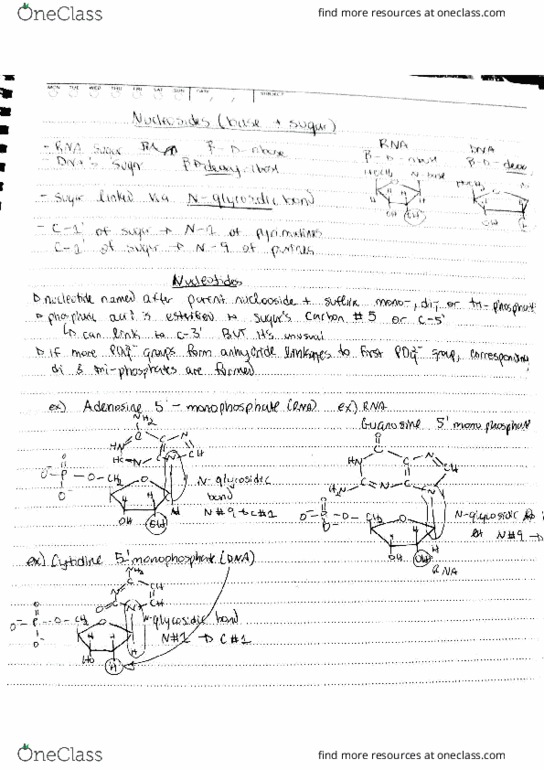 OneClass
find more resources at oneclass.com
MON TUE WED THU FRI SAT SUN DATE SUBJECT
Nucleosides (base + sugar)
- RNA sugar β-D-ribose
- DNA's sugar β-D-deoxy-ribose
RNA
β-D-ribose
N-base
HOCH2
OH
DNA
β-D-deoxy
HOCH2
OH
H
- sugar linked via N-glycosidic bond
- C-1' of sugar → N-1 of pyrimidines
C-1' of sugar → N-9 of purines
Nucleotides
nucleotide named after parent nucleoside + suffix mono-, di-, or tri-phosphate
phosphate acid is esterified to sugar's carbon #5 or C-5'
↳ can link to C-3' BUT it's unusual
If more groups form anhydride linkages to first group, corresponding
di & tri-phosphates are formed
ex) Adenosine 5'-monophosphate (RNA)
ex) RNA
Guanosine 5' monophosphate
NH2
HN
CH
O-P-O-CH2
OH OH H
N-glycosidic
bond
N#9 → C#1
HN
H2N
CH
O-P-O-CH2
OH OH H
RNA
N-glycosidic
N#9 →
ex) Cytidine 5' monophosphate (DNA)
NH2
CH
CH
O-P-O-CH2
HO H H
N-glycosidic bond
N#1 → C#1
OneClass
find more resources at oneclass.com